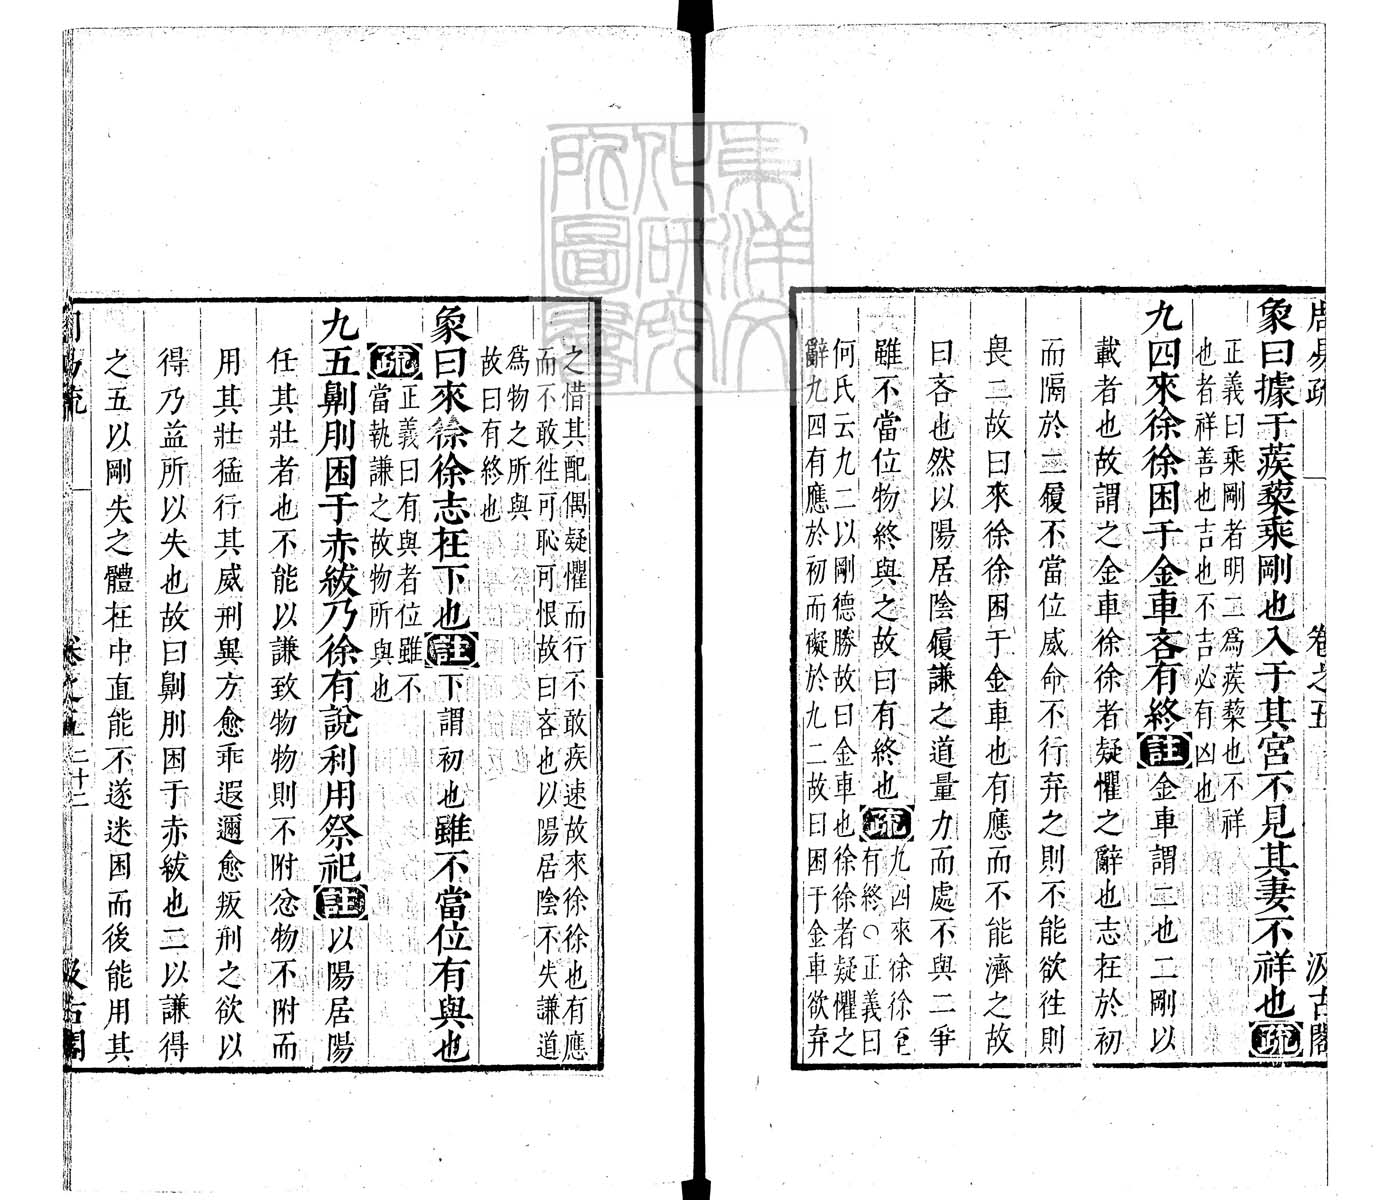 周易疏 卷之五 汲古閣
象曰據于蒺藜乘剛也入于其宮不見其妻不祥也疏
正義曰乘剛者明二爲蒺藜也不祥
也者祥善也吉也不吉必有凶也
九四來徐徐困于金車吝有終註金車謂二也二剛以
載者也故謂之金車徐徐者疑懼之辭也志在於初
而隔於二履不當位威命不行弃之則不能欲往則
畏二故曰來徐徐困于金車也有應而不能濟之故
曰吝也然以陽居陰履謙之道量力而處不與二爭
雖不當位物終與之故曰有終也疏九四來徐徐至
有終○正義曰
何氏云九二以剛德勝故曰金車也徐徐者疑懼之
辭九四有應於初而礙於九二故曰困于金車欲弃
之惜其配偶疑懼而行不敢疾速故來徐徐也有應
而不敢往可恥可恨故曰吝也以陽居陰不失謙道
爲物之所與
故曰有終也
象曰來徐徐志在下也註下謂初也雖不當位有與也
疏正義曰有與者位雖不
當執謙之故物所與也
九五劓刖困于赤紱乃徐有說利用祭祀註以陽居陽
任其壯者也不能以謙致物物則不附忿物不附而
用其壯猛行其威刑異方愈乖遐邇愈叛刑之欲以
得乃益所以失也故曰劓刖困于赤紱也二以謙得
之五以剛失之體在中直能不遂迷困而後能用其
周易疏 卷之五 二十二 汲古閣
東洋文化研究所圖書